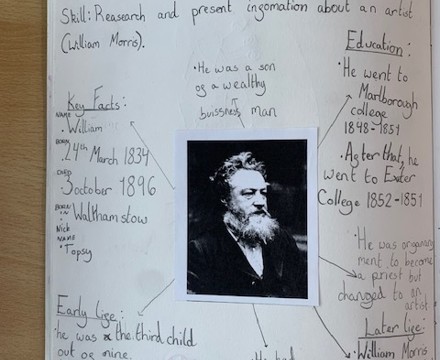 Skill: Reasearch and present ingomation about an artist
(William Morris).
Education:
• He was a son
og a wealthy
buissness man
• He went to
Marlborough
college
1848-1851
Key Facts:
NAME
• William
BORN
24th March 1834
DIED
3october 1896
BORN
IN
• Walthamstow
Nick
NAME
• Topsy
• Agter that, he
went to Exter
College 1852-1851
• He was
ment to become
a priest but
changed to an
artist
Early lige:
he was the third child
out og nine.
Later lige:
• William Morris